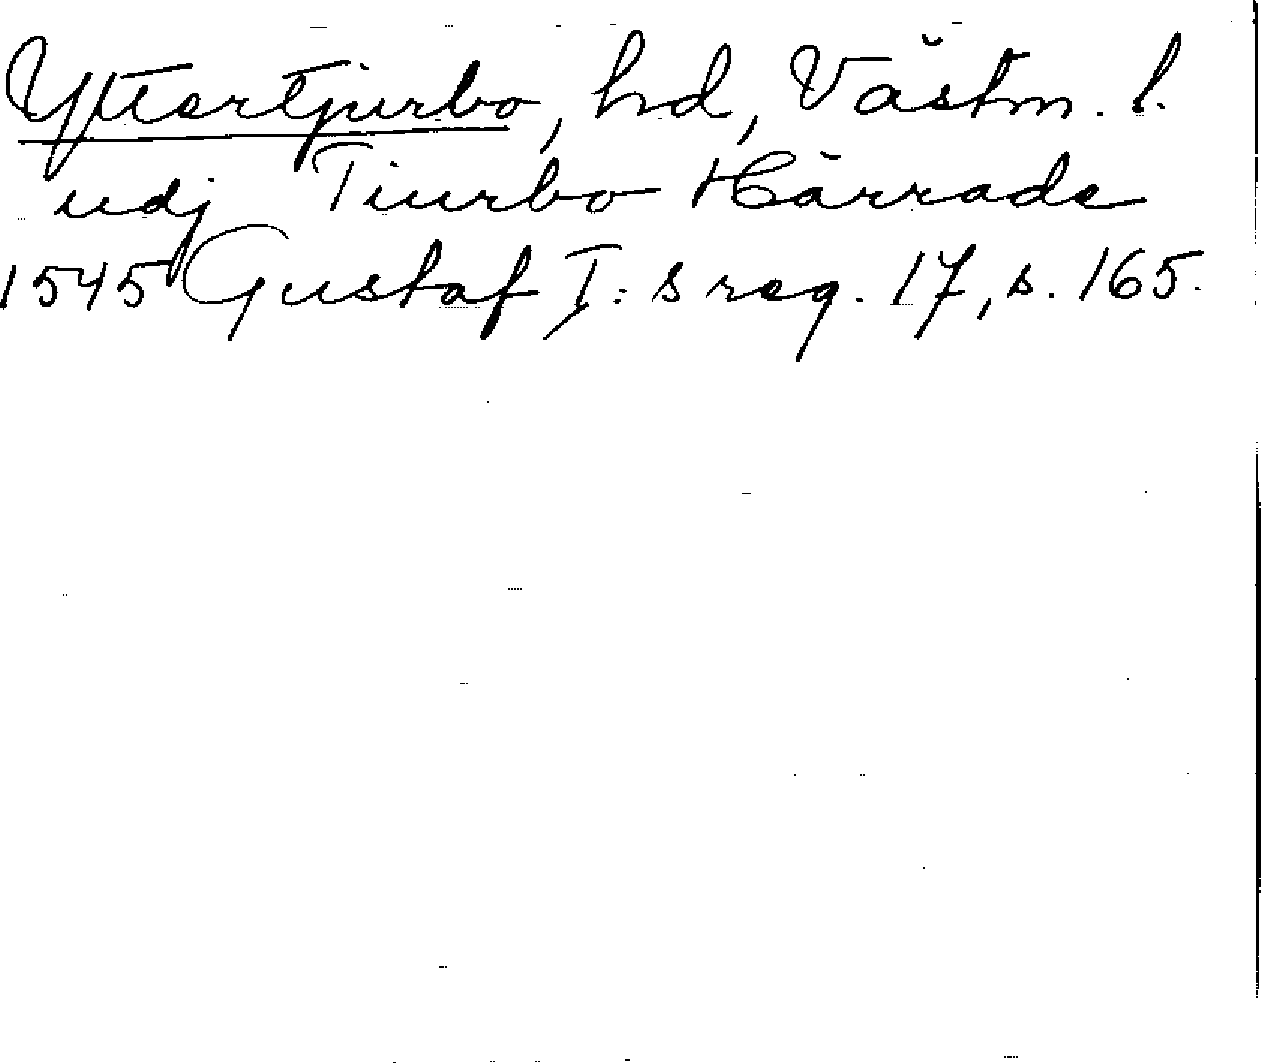 Yttertjurbo, hd, Västm. l.
udj Tiurbo Härrade
1545 Gustaf I:s reg. 17, s. 165.